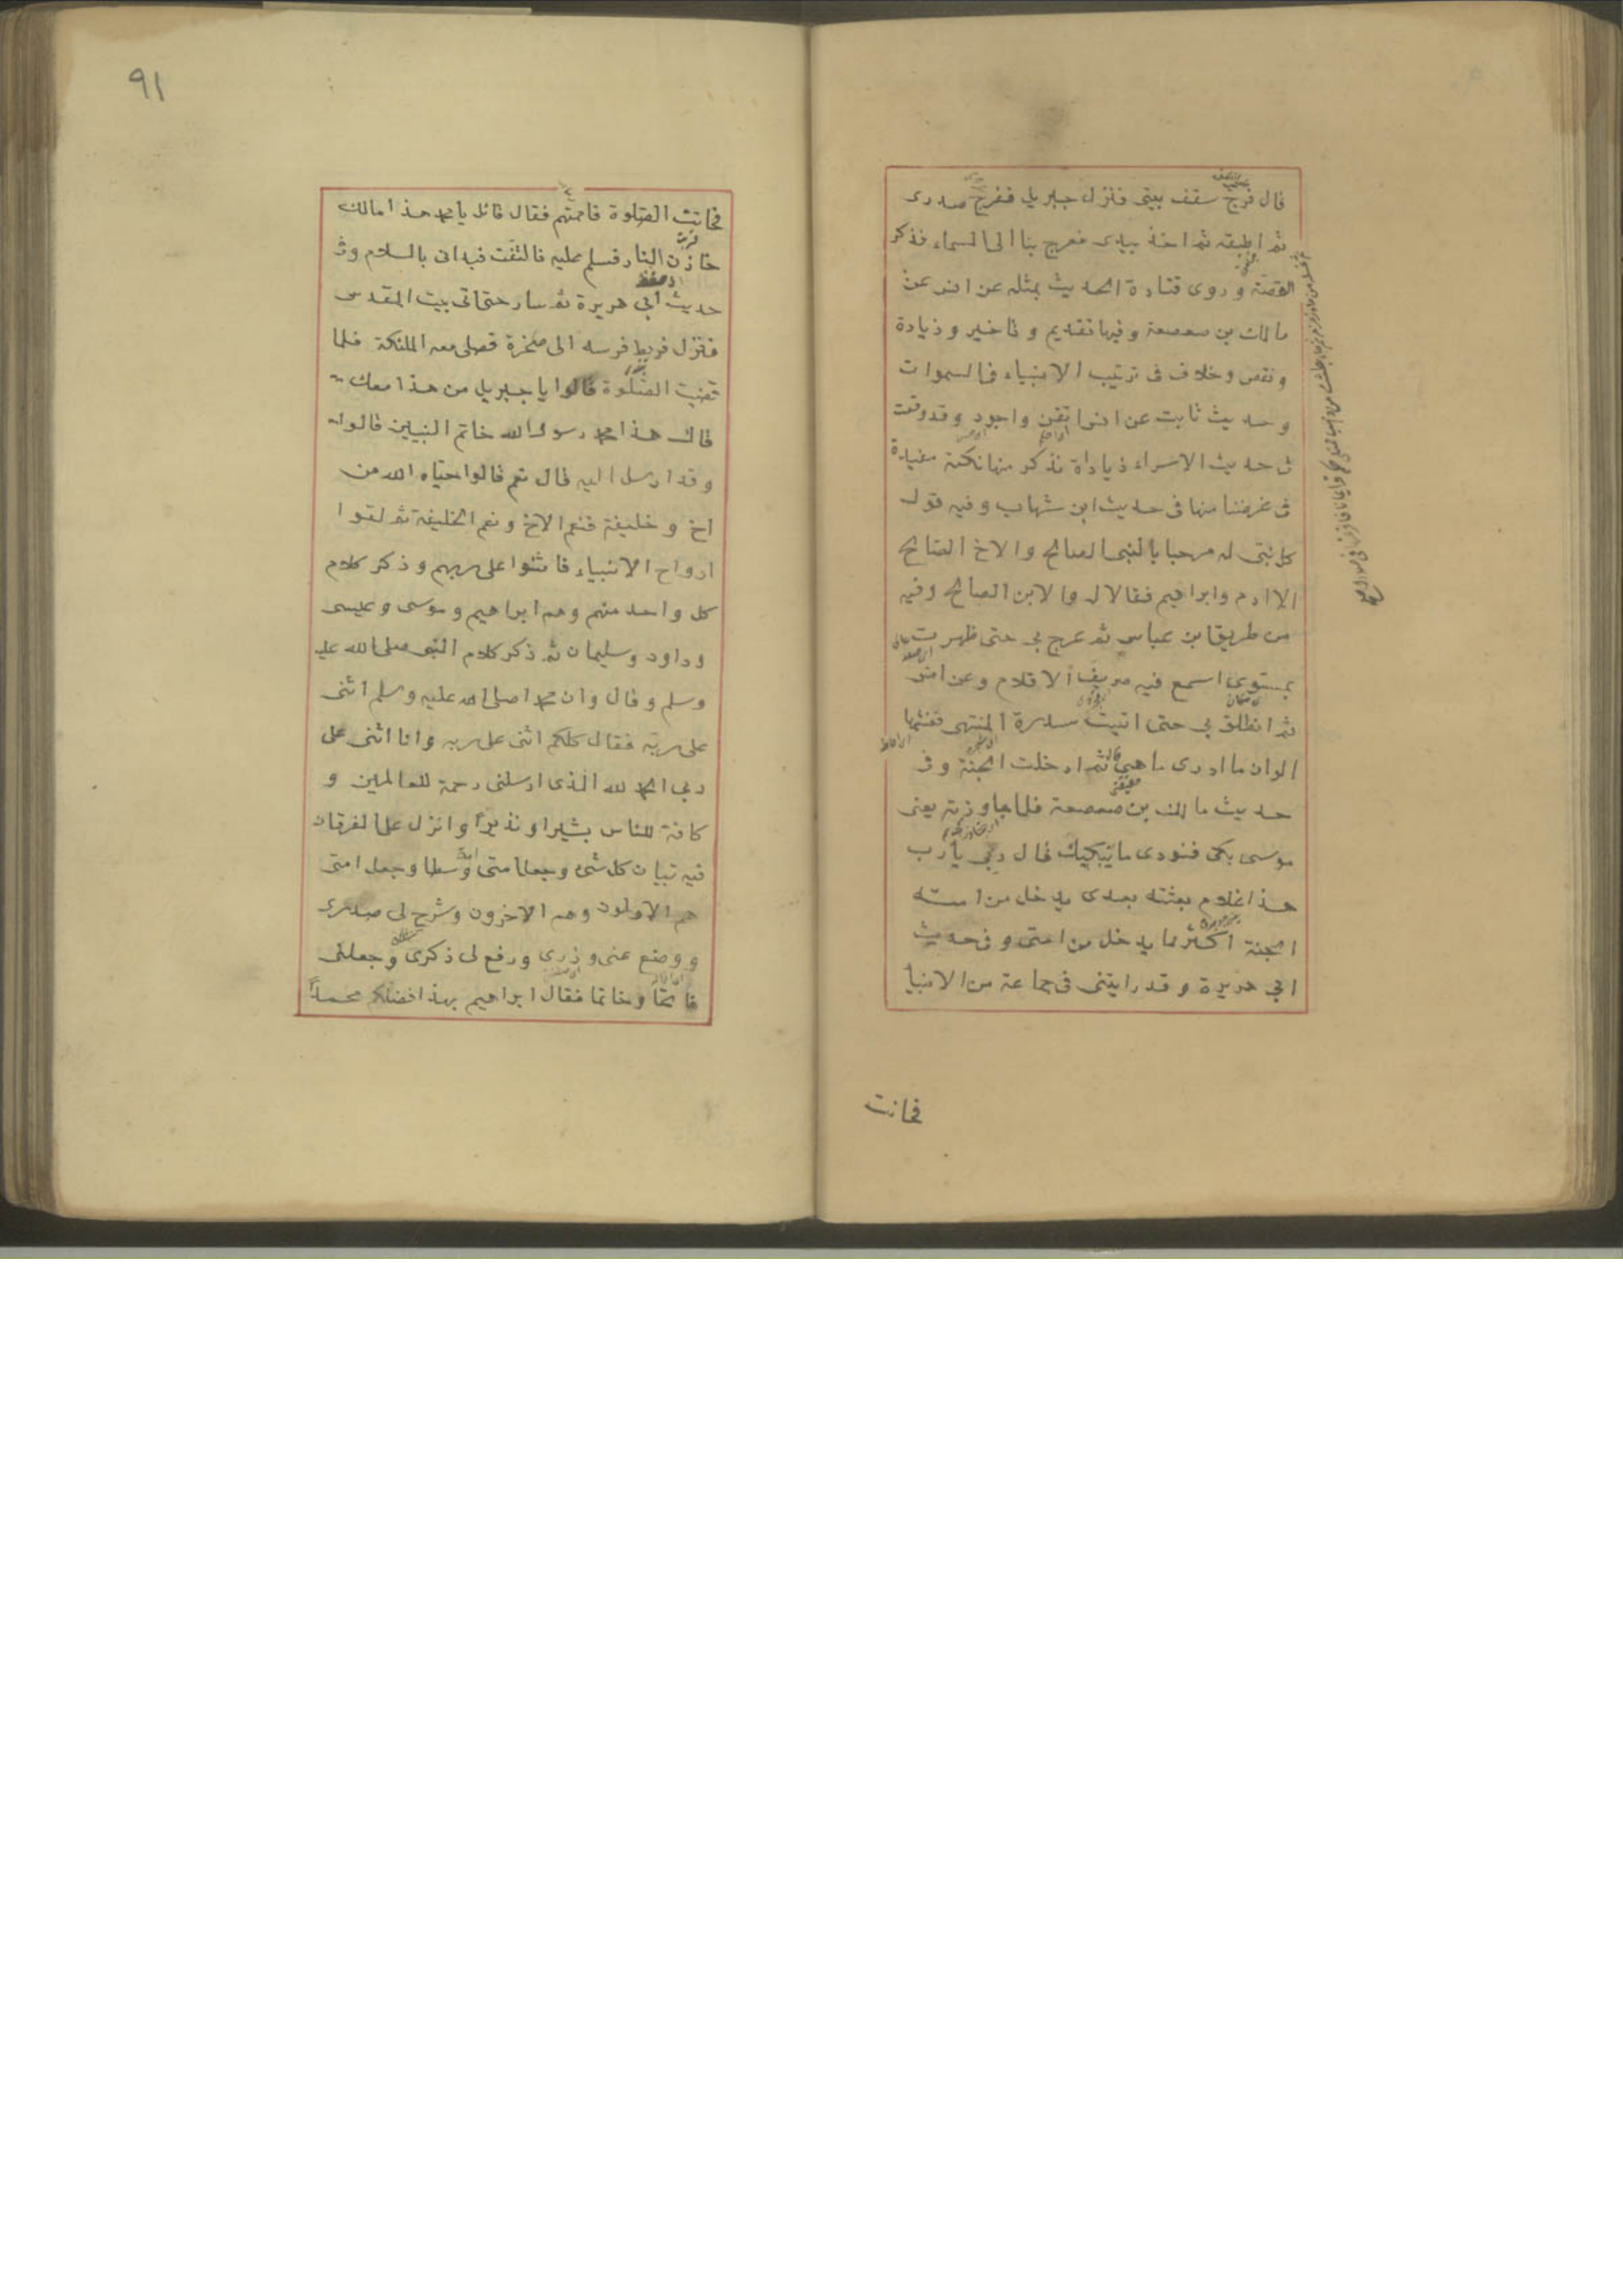 قال فرج سقف بيتى فنزل جبريل ففرج صدرى
ثم اطبقه ثم اخذ بيدى فعرج بنا الى السماء فذكر
القصة وروى قتادة الحديث بمثله عن انس عن
مالك بن صعصعة وفيها تقديم وتاخير وزيادة
ونقص وخلاف فى ترتيب الانبياء فى السموات
وحديث ثابت عن انس اتقن واجود وقد وقعت
فى حديث الاسراء زيادات نذكر منها نكتة مفيدة
فى غرضنا منها فى حديث ابن شهاب وفيه قول
كل نبى له مرحبا بالنبى الصالح والاخ الصالح
الا ادم وابراهيم فقالا له والابن الصالح وفيه
من طريق ابن عباس ثم عرج بى حتى ظهرت
بمستوى اسمع فيه صريف الاقلام وعن انس
ثم انطلق بى حتى اتيت سدرة المنتهى فغشيها
الوان ما ادرى ما هى قال ثم ادخلت الجنة وفى
حديث مالك بن صعصعة فلما جاوزته يعنى
موسى بكى فنودى ما يبكيك قال ربى يا رب
هذا غلام بعثته بعدى يدخل من امته
الجنة اكثر مما يدخل من امتى وفى حديث
ابى هريرة وقد رايتنى فى جماعة من الانبيا
فحانت
٩١
فحانت الصلوة فاممتهم فقال قائل يا محمد هذا مالك
خازن النار فسلم عليه فالتفت فبدانى بالسلام وفى
حديث ابى هريرة ثم سار حتى اتى بيت المقدس
فنزل فربط فرسه الى صخرة فصلى معه الملئكة فلما
قضيت الصلوة قالوا يا جبريل من هذا معك
قال هذا محمد رسول الله خاتم النبيين قالوا
وقد ارسل اليه قال نعم قالوا حياه الله من
اخ وخليفة فنعم الاخ ونعم الخليفة ثم لقوا
ارواح الانبياء فاثنوا على ربهم وذكر كلام
كل واحد منهم وهم ابراهيم وموسى وعيسى
وداود وسليمان ثم ذكر كلام النبى صلى الله عليه
وسلم وقال وان محمدا صلى الله عليه وسلم اثنى
على ربه فقال كلكم اثنى على ربه وانا اثنى على
ربى الحمد لله الذى ارسلنى رحمة للعالمين و
كافة للناس بشيرا ونذيرا وانزل على الفرقان
فيه تبيان كل شئ وجعل امتى امة وسطا وجعل امتى
هم الاولون وهم الاخرون وشرح لى صدرى
ووضع عنى وزرى ورفع لى ذكرى وجعلنى
فاتحا وخاتما فقال ابراهيم بهذا افضلكم محمدا